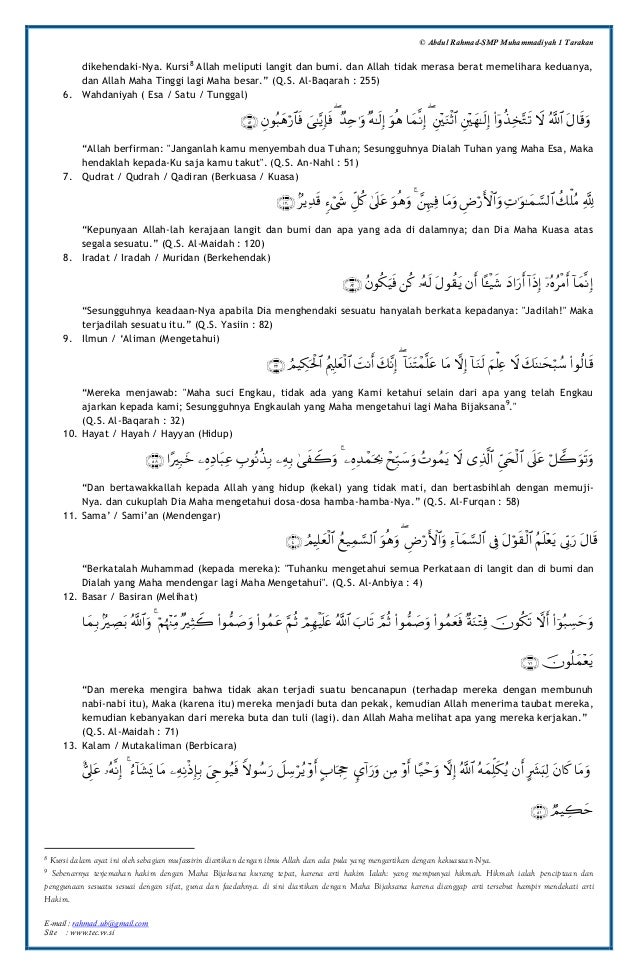 © Abdul Rahmad-SMP Muhammadiyah 1 Tarakan
dikehendaki-Nya. Kursi⁸ Allah meliputi langit dan bumi. dan Allah tidak merasa berat memelihara keduanya,
dan Allah Maha Tinggi lagi Maha besar.” (Q.S. Al-Baqarah : 255)
6. Wahdaniyah ( Esa / Satu / Tunggal)
وَقَالَ ٱللَّهُ لَا تَتَّخِذُوٓا۟ إِلَـٰهَيْنِ ٱثْنَيْنِ ۖ إِنَّمَا هُوَ إِلَـٰهٌ وَٰحِدٌ ۖ فَإِيَّـٰىَ فَٱرْهَبُونِ ﴿٥١﴾
“Allah berfirman: "Janganlah kamu menyembah dua Tuhan; Sesungguhnya Dialah Tuhan yang Maha Esa, Maka
hendaklah kepada-Ku saja kamu takut". (Q.S. An-Nahl : 51)
7. Qudrat / Qudrah / Qadiran (Berkuasa / Kuasa)
لِلَّهِ مُلْكُ ٱلسَّمَـٰوَٰتِ وَٱلْأَرْضِ وَمَا فِيهِنَّ ۚ وَهُوَ عَلَىٰ كُلِّ شَىْءٍ قَدِيرٌۢ ﴿١٢٠﴾
“Kepunyaan Allah-lah kerajaan langit dan bumi dan apa yang ada di dalamnya; dan Dia Maha Kuasa atas
segala sesuatu.” (Q.S. Al-Maidah : 120)
8. Iradat / Iradah / Muridan (Berkehendak)
إِنَّمَآ أَمْرُهُۥٓ إِذَآ أَرَادَ شَيْـًٔا أَن يَقُولَ لَهُۥ كُن فَيَكُونُ ﴿٨٢﴾
“Sesungguhnya keadaan-Nya apabila Dia menghendaki sesuatu hanyalah berkata kepadanya: "Jadilah!" Maka
terjadilah sesuatu itu.” (Q.S. Yasiin : 82)
9. Ilmun / ‘Aliman (Mengetahui)
قَالُوا۟ سُبْحَـٰنَكَ لَا عِلْمَ لَنَآ إِلَّا مَا عَلَّمْتَنَآ ۖ إِنَّكَ أَنتَ ٱلْعَلِيمُ ٱلْحَكِيمُ ﴿٣٢﴾
“Mereka menjawab: "Maha suci Engkau, tidak ada yang Kami ketahui selain dari apa yang telah Engkau
ajarkan kepada kami; Sesungguhnya Engkaulah yang Maha mengetahui lagi Maha Bijaksana⁹."
(Q.S. Al-Baqarah : 32)
10. Hayat / Hayah / Hayyan (Hidup)
وَتَوَكَّلْ عَلَى ٱلْحَىِّ ٱلَّذِى لَا يَمُوتُ وَسَبِّحْ بِحَمْدِهِۦ ۚ وَكَفَىٰ بِهِۦ بِذُنُوبِ عِبَادِهِۦ خَبِيرًا ﴿٥٨﴾
“Dan bertawakkallah kepada Allah yang hidup (kekal) yang tidak mati, dan bertasbihlah dengan memuji-
Nya. dan cukuplah Dia Maha mengetahui dosa-dosa hamba-hamba-Nya.” (Q.S. Al-Furqan : 58)
11. Sama’ / Sami’an (Mendengar)
قَالَ رَبِّى يَعْلَمُ ٱلْقَوْلَ فِى ٱلسَّمَآءِ وَٱلْأَرْضِ ۖ وَهُوَ ٱلسَّمِيعُ ٱلْعَلِيمُ ﴿٤﴾
“Berkatalah Muhammad (kepada mereka): "Tuhanku mengetahui semua Perkataan di langit dan di bumi dan
Dialah yang Maha mendengar lagi Maha Mengetahui". (Q.S. Al-Anbiya : 4)
12. Basar / Basiran (Melihat)
وَحَسِبُوٓا۟ أَلَّا تَكُونَ فِتْنَةٌ فَعَمُوا۟ وَصَمُّوا۟ ثُمَّ تَابَ ٱللَّهُ عَلَيْهِمْ ثُمَّ عَمُوا۟ وَصَمُّوا۟ كَثِيرٌ مِّنْهُمْ ۚ وَٱللَّهُ بَصِيرٌۢ بِمَا
يَعْمَلُونَ ﴿٧١﴾
“Dan mereka mengira bahwa tidak akan terjadi suatu bencanapun (terhadap mereka dengan membunuh
nabi-nabi itu), Maka (karena itu) mereka menjadi buta dan pekak, kemudian Allah menerima taubat mereka,
kemudian kebanyakan dari mereka buta dan tuli (lagi). dan Allah Maha melihat apa yang mereka kerjakan.”
(Q.S. Al-Maidah : 71)
13. Kalam / Mutakaliman (Berbicara)
وَمَا كَانَ لِبَشَرٍ أَن يُكَلِّمَهُ ٱللَّهُ إِلَّا وَحْيًا أَوْ مِن وَرَآئِ حِجَابٍ أَوْ يُرْسِلَ رَسُولًا فَيُوحِىَ بِإِذْنِهِۦ مَا يَشَآءُ ۚ إِنَّهُۥ عَلِىٌّ
حَكِيمٌ ﴿٥١﴾
⁸ Kursi dalam ayat ini oleh sebagian mufassirin diartikan dengan ilmu Allah dan ada pula yang mengartikan dengan kekuasaan-Nya.
⁹ Sebenarnya terjemahan hakim dengan Maha Bijaksana kurang tepat, karena arti hakim Ialah: yang mempunyai hikmah. Hikmah ialah penciptaan dan
penggunaan sesuatu sesuai dengan sifat, guna dan faedahnya. di sini diartikan dengan Maha Bijaksana karena dianggap arti tersebut hampir mendekati arti
Hakim.
E-mail : rahmad_ub@gmail.com
Site : www.tec.vv.si